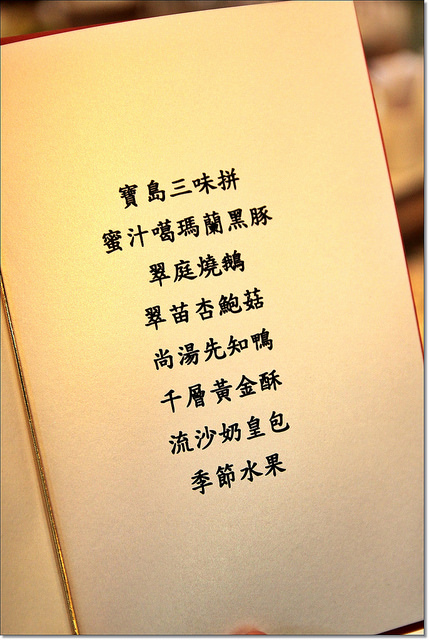 寶島三味拼
蜜汁噶瑪蘭黑豚
翠庭燒鵝
翠苗杏鮑菇
尚湯先知鴨
千層黃金酥
流沙奶皇包
季節水果